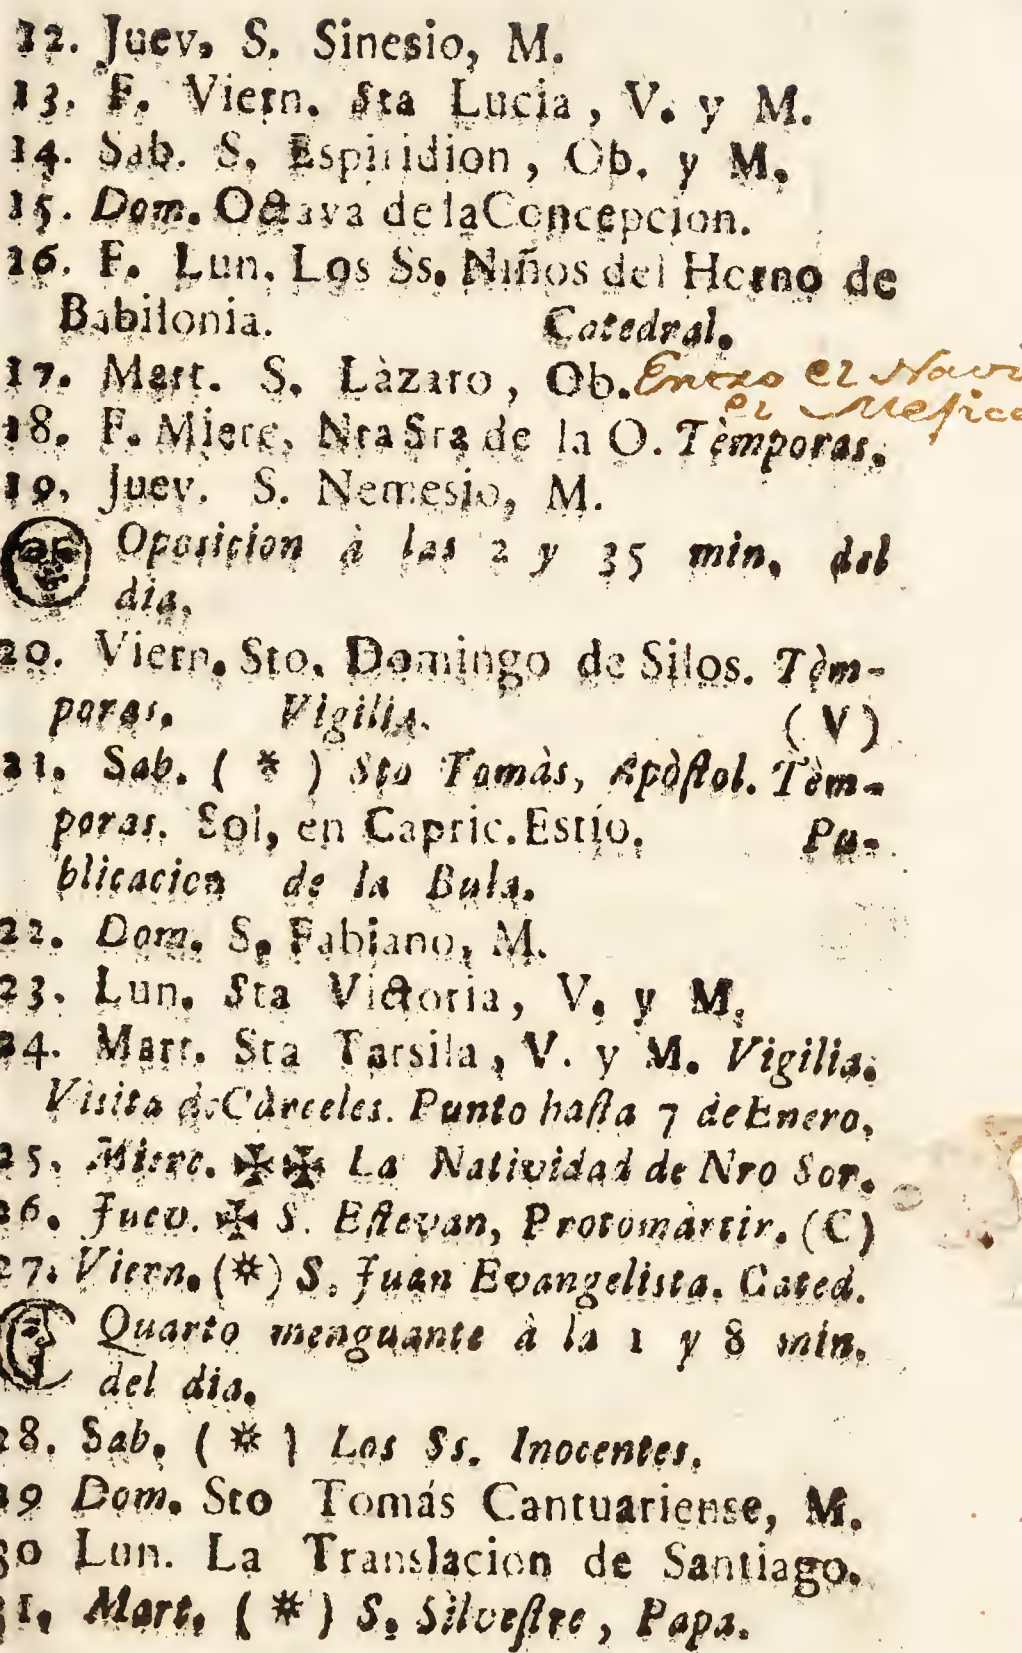 12. Juev. S. Sinesio, M.
13. F. Viern. Sta Lucia, V. y M.
14. Sab. S. Espiridion, Ob. y M.
15. Dom. Octava de la Concepcion.
16. F. Lun. Los Ss. Niños del Horno de
Babilonia. Catedral.
17. Mart. S. Làzaro, Ob. Entro el Navi
el Mefice
18. F. Mierc. Nra Sra de la O. Tèmporas.
19. Juev. S. Nemesio, M.
Oposicion à las 2 y 35 min. del
dia.
20. Viern. Sto. Domingo de Silos. Tèm-
poras. Vigilia. (V)
21. Sab. ( * ) Sto Tomàs, Apòſtol. Tèm-
poras. Sol, en Capric. Estio. Pu-
blicacion de la Bula.
22. Dom. S. Fabiano, M.
23. Lun. Sta Victoria, V. y M.
24. Mart. Sta Tarsila, V. y M. Vigilia.
Visita de Càrceles. Punto haſta 7 de Enero.
25. Mierc. ✠✠ La Natividad de Nro Sor.
26. Juev. ✠ S. Eſtevan, Protomàrtir. (C)
27. Viern. (*) S. Juan Evangelista. Cated.
Quarto menguante à la 1 y 8 min.
del dia.
28. Sab. ( * ) Los Ss. Inocentes.
29 Dom. Sto Tomás Cantuariense, M.
30 Lun. La Translacion de Santiago.
31. Mart. ( * ) S. Silveſtre, Papa.